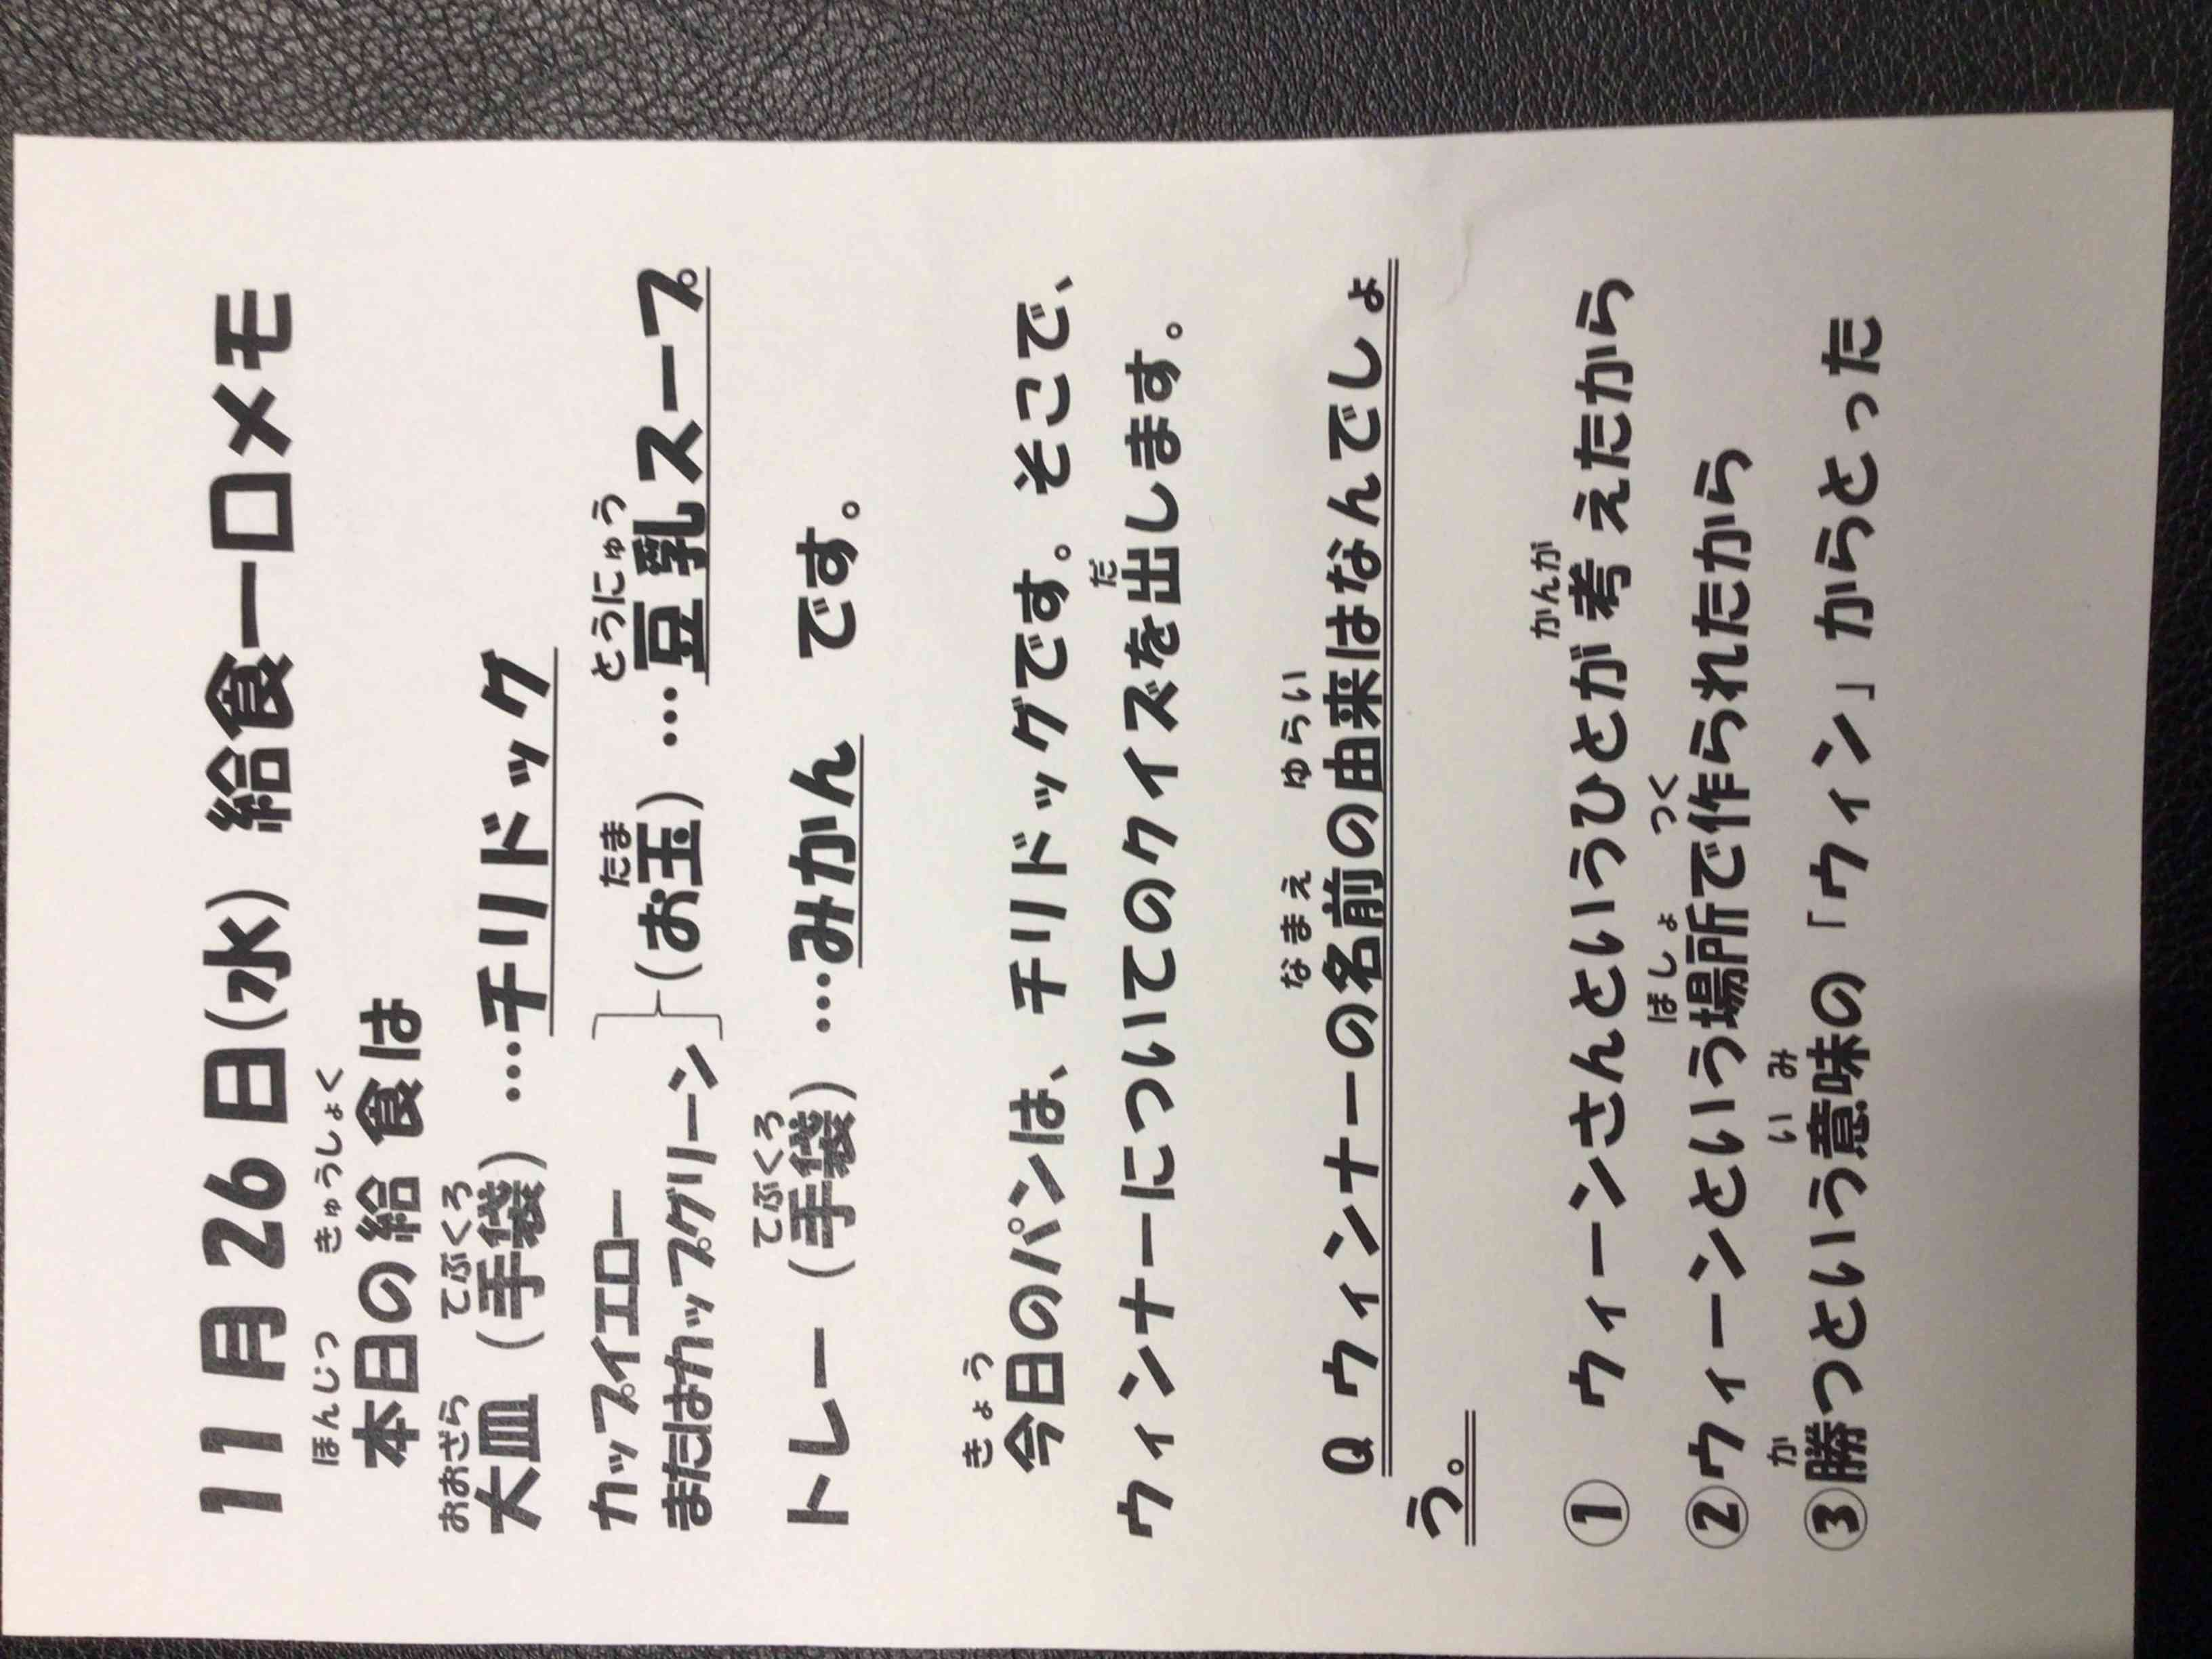 11月26日(水) 給食一口メモ
ほんじつ きゅうしょく
本日の給食は
おおざら てぶくろ
大皿(手袋)…チリドック
たま とうにゅう
カップイエロー
またはカップグリーン}(お玉)…豆乳スープ
てぶくろ
トレー(手袋)…みかん です。
きょう
今日のパンは、チリドッグです。そこで、
だ
ウィンナーについてのクイズを出します。
なまえ ゆらい
Q ウィンナーの名前の由来はなんでしょ
う。
かんが
① ウィーンさんというひとが考えたから
ばしょ つく
②ウィーンという場所で作られたから
か いみ
③勝つという意味の「ウィン」からとった